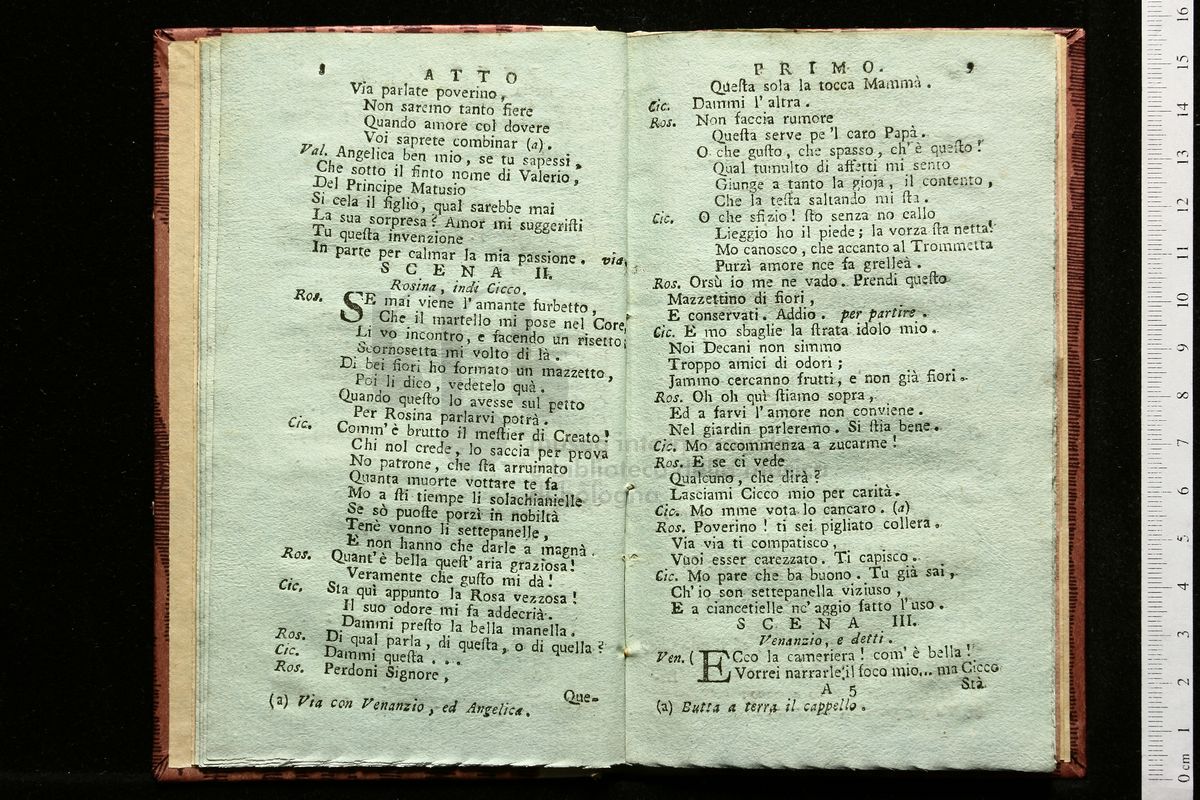 8 ATTO
Via parlate poverino,
Non saremo tanto fiere
Quando amore col dovere
Voi saprete combinar (a).
Val. Angelica ben mio, se tu sapessi,
Che sotto il finto nome di Valerio,
Del Principe Matusio
Si cela il figlio, qual sarebbe mai
La sua sorpresa? Amor mi suggeristi
Tu questa invenzione
In parte per calmar la mia passione. via.
SCENA II.
Rosina, indi Cicco.
Ros. SE mai viene l'amante furbetto,
Che il martello mi pose nel Core,
Li vo incontro, e facendo un risetto;
Scornosetta mi volto di là.
Di bei fiori ho formato un mazzetto,
Poi li dico, vedetelo quà.
Quando questo lo avesse sul petto
Per Rosina parlarvi potrà.
Cic. Comm'è brutto il mestier di Creato!
Chi nol crede, lo saccia per prova
No patrone, che sta arruinato
Quanta muorte vottare te fa
Mo a sti tiempe li solachianielle
Se sò puoste porzì in nobiltà
Tenè vonno li settepanelle,
E non hanno che darle a magnà.
Ros. Quant'è bella quest'aria graziosa!
Veramente che gusto mi dà!
Cic. Sta quì appunto la Rosa vezzosa!
Il suo odore mi fa addecrià.
Dammi presto la bella manella.
Ros. Di qual parla, di questa, o di quella?
Cic. Dammi questa...
Ros. Perdoni Signore,
Que-
(a) Via con Venanzio, ed Angelica.
PRIMO. 9
Questa sola la tocca Mammà.
Cic. Dammi l'altra.
Ros. Non faccia rumore
Questa serve pe 'l caro Papà.
O che gusto, che spasso, ch'è questo!
Qual tumulto di affetti mi sento
Giunge a tanto la gioja, il contento,
Che la testa saltando mi sta.
Cic. O che sfizio! sto senza no callo
Lieggio ho il piede; la vorza sta netta!
Mo canosco, che accanto al Trommetta
Purzì amore nce fa grelleà.
Ros. Orsù io me ne vado. Prendi questo
Mazzettino di fiori,
E conservati. Addio. per partire.
Cic. E mo sbaglie la strata idolo mio.
Noi Decani non simmo
Troppo amici di odori;
Jammo cercanno frutti, e non già fiori.
Ros. Oh oh quì stiamo sopra,
Ed a farvi l'amore non conviene.
Nel giardin parleremo. Si stia bene.
Cic. Mo accommenza a zucarme!
Ros. E se ci vede
Qualcuno, che dirà?
Lasciami Cicco mio per carità.
Cic. Mo mme vota lo cancaro. (a)
Ros. Poverino! ti sei pigliato collera.
Via via ti compatisco,
Vuoi esser carezzato. Ti capisco.
Cic. Mo pare che ba buono. Tu già sai,
Ch'io son settepanella viziuso,
E a ciancetielle nc'aggio fatto l'uso.
SCENA III.
Venanzio, e detti.
Ven. (ECco la cameriera! com'è bella!
Vorrei narrarle il foco mio... ma Cicco
A 5 Stà
(a) Butta a terra il cappello.